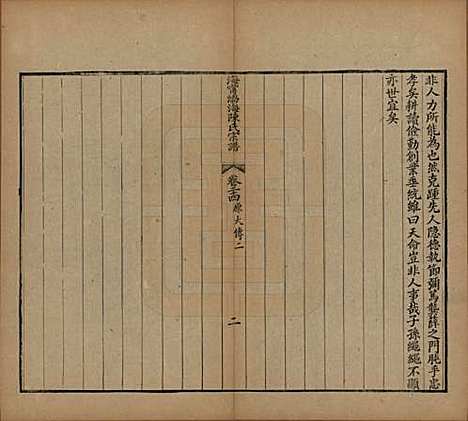 非人力所能為也然克踵先人隐德執節彌篤龔薛之門肫乎忠
孝矣耕讀儉勤創業垂統雖曰天命豈非人事哉子孫繩繩不顯
亦世宜矣
海寧渤海陳氏宗譜
卷二十四
大傳二
二